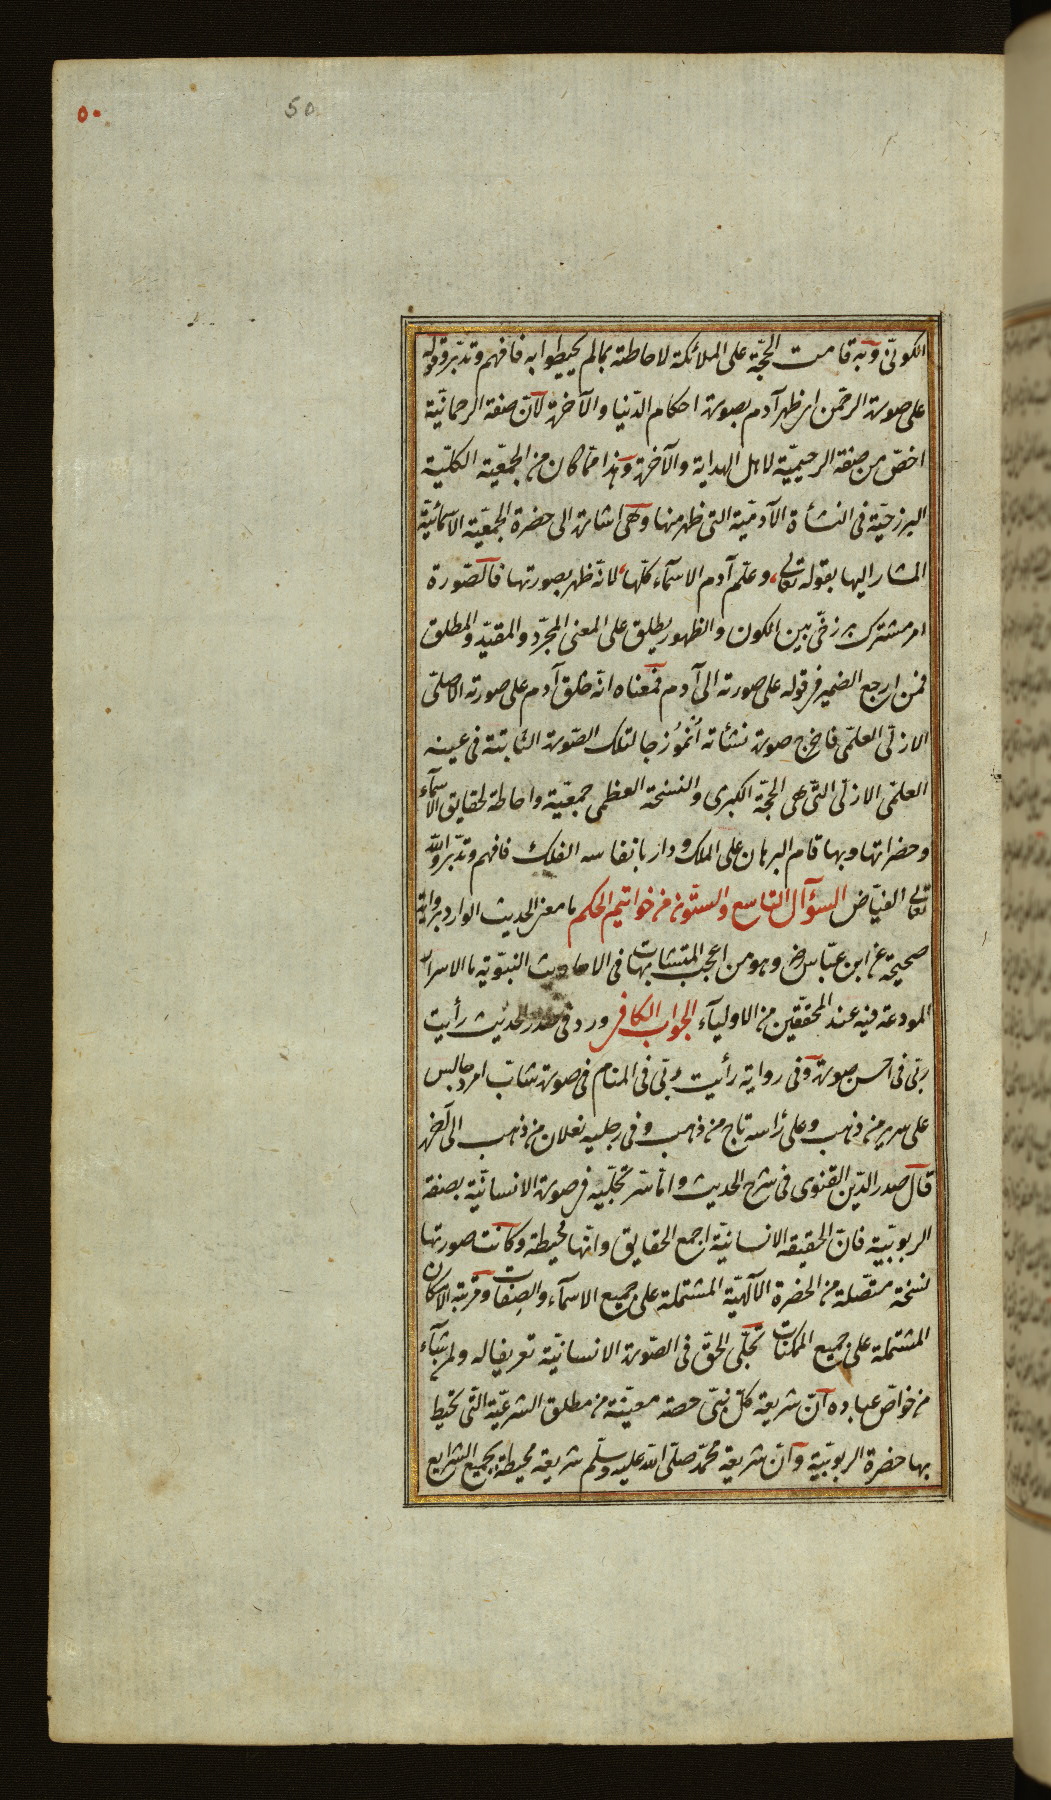 ٥٠
50
الكونىّ وبه قامت الحجّة على الملائكة لاحاطته بما لم يحيطوا به فافهم وتدبّر وقوله
على صورة الرحمن اى ظهر آدم بصورة احكام الدّنيا والآخرة لآنّ صفة الرحمانيّة
اخصّ من صفة الرحيميّة لاهل الهداية والآخرة وهذا ممّا كان من الجمعيّة الكليّة
البرزخيّة فى النشأة الآدميّة التى ظهر منها وهى اشارة الى حضرة الجمعيّة الاسمائيّة
المشار اليها بقوله تعالى، وعلّم آدم الاسمآء كلّها، لانّه ظهر بصورتها فالصّورة
امر مشترك برزخىّ بين الكون والظهور يطلق على المعنى المجرّد والمقيّد والمطلق
فمن ارجع الضمير فى قوله على صورته الى آدم فمعناه انّه خلق آدم على صورته الاصلىّ
الازلىّ العلمىّ فاخرج صورة نشأته أنموزجا لتلك الصّورة الثابتة فى عينه
العلمىّ الازلىّ التّى هى الحجّة الكبرى والنسخة العظمى جمعيّة واحاطة لحقايق الاسمآء
وحضراتها وبها قام البرهان على الملك ودار بانفاسه الفلك فافهم وتدبّر والله
تعالى الفيّاض السؤآل التاسع والستّون من خواتيم الحكم ما معنى الحديث الوارد برواية
صحيحة عن ابن عبّاس رض وهو من اعجب المتشابهات فى الاحاديث النبّوية ما الاسرار
المودعة فيه عند المحقّقين من الاوليآء الجواب الكافى ورد فى صدر الحديث رأيت
ربّى فى احسن صورة وفى رواية رأيت ربّى فى المنام فى صورة شابّ امرد جالس
على سرير من ذهب وعلى رأسه تاج من ذهب وفى رجليه نعلان من ذهب الى آخره
قال صدر الدّين القنوى فى شرح الحديث وامّا سرّ تجلّيه فى صورة الانسانيّة بصفة
الربوبيّة فانّ الحقيقة الانسانيّة اجمع الحقايق وانّها محيطة وكانت صورتها
نسخة متصّلة من الحضرة الآلهيّة المشتملة على جميع الاسمآء والصفات ومرتبة الامكان
المشتملة على جميع الممكنات تجلّى الحقّ فى الصّورة الانسانيّة تعريفا له ولمن شآء
من خواصّ عباده آنّ شريعة كلّ نبىّ حصة معيّنة من مطلق الشرعيّة التّى تحيط
بها حضرة الربوبيّة وآنّ شريعة محمّد صلّى الله عليه وسلّم شريعة محيطة بجميع الشرايع